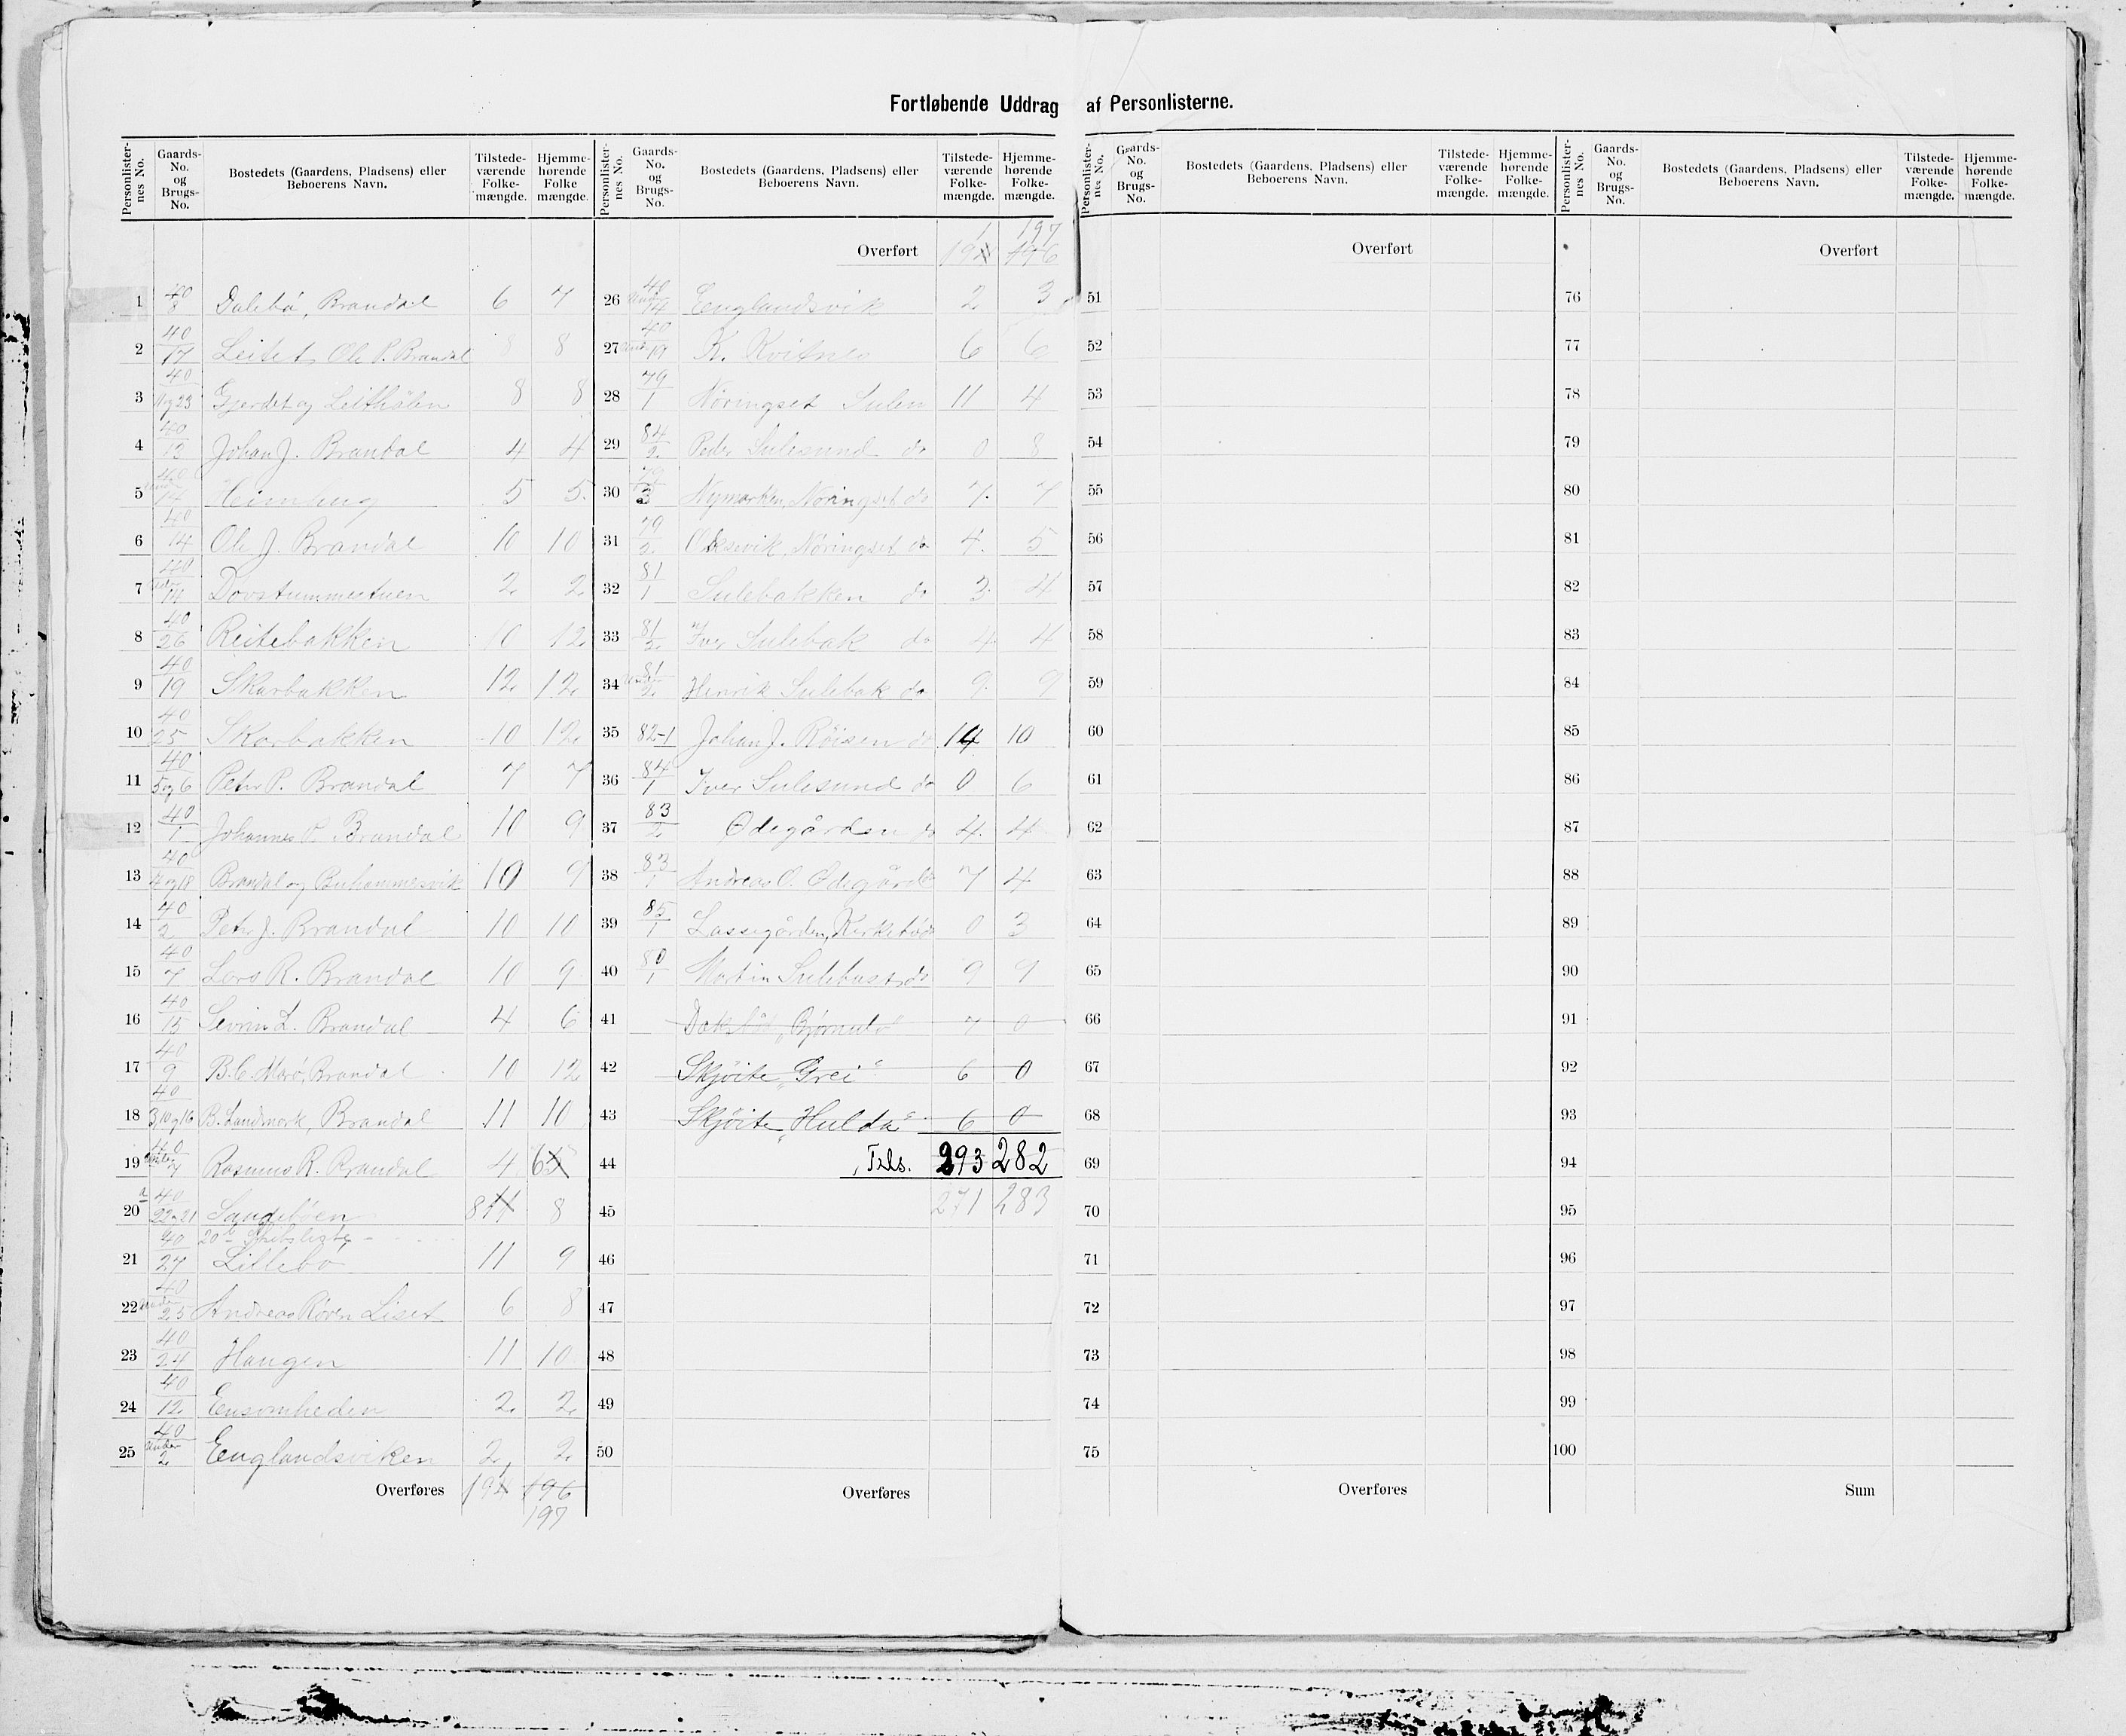 Fortløbende Uddrag af Personlisterne.
Personlister-nes No. | Gaards-No. og Brugs-No. | Bostedets (Gaardens, Pladsens) eller Beboerens Navn. | Tilstede-værende Folke-mængde. | Hjemme-hørende Folke mængde.
1 | 40/8 | Dalebø, Brandal | 6 | 7
2 | 40/17 | Leitet, Ole P. Brandal | 8 | 8
3 | 40/11og23 | Gjerdet og Leithålen | 8 | 8
4 | 40/13 | Johan J. Brandal | 4 | 4
5 | 40/under 14 | Heimhug | 5 | 5
6 | 40/14 | Ole J. Brandal | 10 | 10
7 | 40/und. 14 | Døvstummestuen | 2 | 2
8 | 40/26 | Reitebakken | 10 | 12
9 | 40/19 | Skarbakken | 12 | 12
10 | 40/25 | Skarbakken | 10 | 12
11 | 40/5og6 | Petr P. Brandal | 7 | 7
12 | 40/1 | Johannes P. Brandal | 10 | 9
13 | 40/4og18 | Brandal og Buhammersvik | 10 | 9
14 | 40/2 | Petr J. Brandal | 10 | 10
15 | 40/7 | Lars R. Brandal | 10 | 9
16 | 40/15 | Sevrin L. Brandal | 4 | 6
17 | 40/9 | B. C. Marø, Brandal | 10 | 12
18 | 40/3,10og16 | B. Landmark, Brandal | 11 | 10
19 | 40/under 7 | Rasmus R. Brandal | 4 | 6 5
20 a | 40/22og21 | Sandebøen | 8 11 | 8
20 b Skibsliste
21 | 40/27 | Lillebø | 11 | 9
22 | 40/under 25 | Andreas Røren Liset | 6 | 8
23 | 40/24 | Haugen | 11 | 10
24 | 40/12 | Ensomheden | 2 | 2
25 | 40/under 2 | Eenglandsviken | 2 | 2
Overføres | 194 1 | 196
197
Personlister-nes No. | Gaards-No. og Brugs-No. | Bostedets (Gaardens, Pladsens) eller Beboerens Navn. | Tilstede-værende Folke-mængde. | Hjemme-hørende Folke-mængde.
1 | 197
Overført | 194 | 196
26 | 40/under 14 | Eenglandsvik | 2 | 3
27 | 40/und. 19 | K. Kvitnes | 6 | 6
28 | 79/1 | Nøringset Sulen | 11 | 4
29 | 84/2 | Peder Sulesund do | 0 | 8
30 | 79/3 | Nymarken, Nøringset do | 7 | 7
31 | 79/2 | Oksevik, Nøringset do | 4 | 5
32 | 81/1 | Sulebakken do | 3 | 4
33 | 81/2 | Iver Sulebak do | 4 | 4
34 | 81/under 2 | Henrik Sulebak do | 9 | 9
35 | 82-1 | Johan J. Røisen do | 14 | 10
36 | 84/1 | Iver Sulesund do | 0 | 6
37 | 83/2 | Ødegården do | 4 | 4
38 | 83/1 | Andreas O. Ødegård do | 7 | 4
39 | 85/1 | Lassegården, Kirkebø do | 0 | 3
40 | 80/1 | Martin Sulebust do | 9 | 9
41 | „Bjørnulv“ | 7 | 0
42 | Skjøite „Grei“ | 6 | 0
43 | Skjøite „Hulda“ | 6 | 0
44 | Tils. | 293 | 282
45 | 271 | 283
46
47
48
49
50
Overføres
Personlister-nes No. | Gaards-No. og Brugs-No. | Bostedets (Gaardens, Pladsens) eller Beboerens Navn. | Tilstede-værende Folke-mængde. | Hjemme-hørende Folke-mængde.
Overført
51
52
53
54
55
56
57
58
59
60
61
62
63
64
65
66
67
68
69
70
71
72
73
74
75
Overføres
Personlister-nes No. | Gaards-No. og Brugs-No. | Bostedets (Gaardens, Pladsens) eller Beboerens Navn. | Tilstede-værende Folke-mængde. | Hjemme-hørende Folke-mængde.
Overført
76
77
78
79
80
81
82
83
84
85
86
87
88
89
90
91
92
93
94
95
96
97
98
99
100
Sum